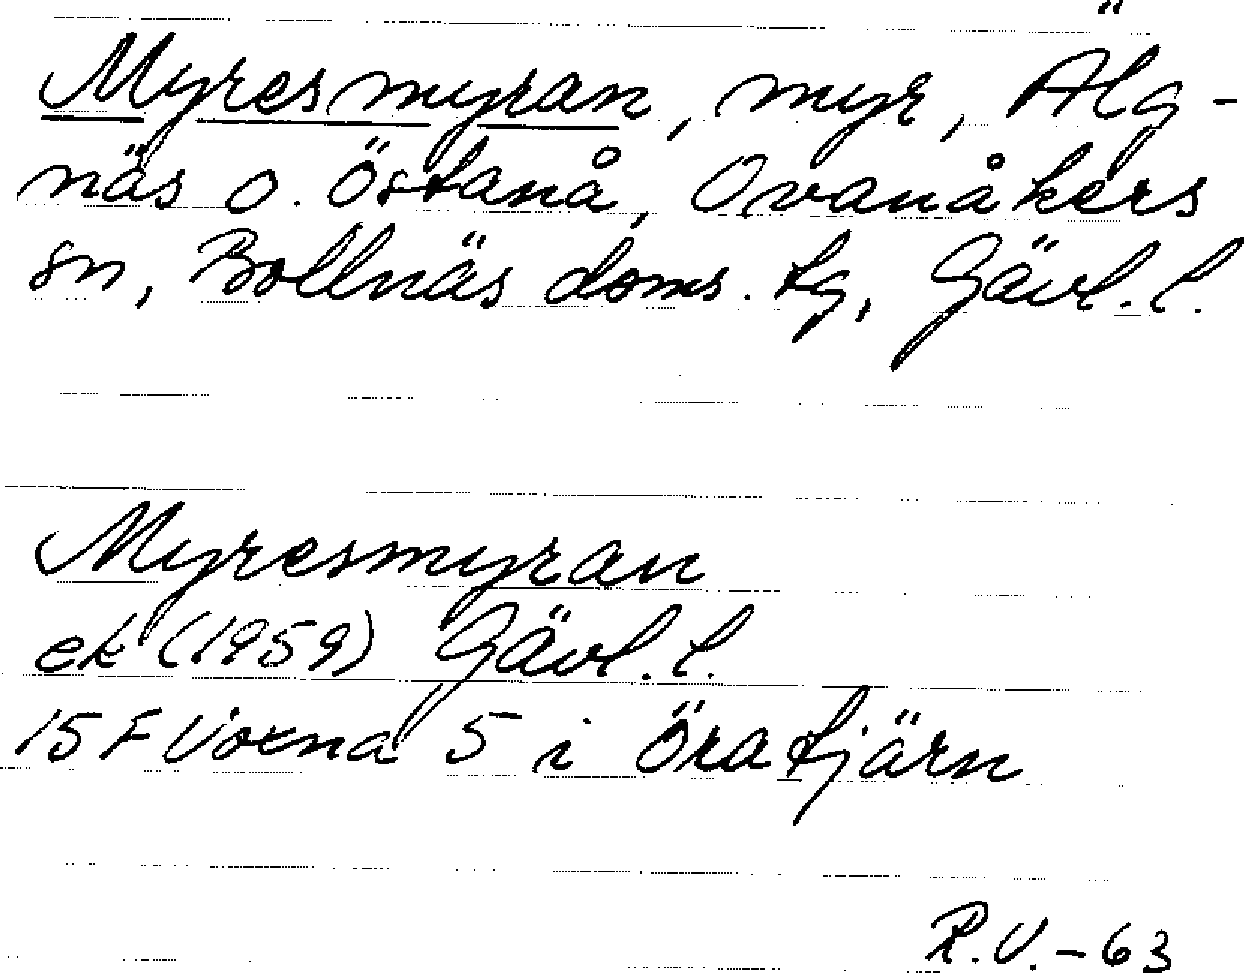 Myresmyran, myr, Älg-
näs o. Östanå, Ovanåkers
sn, Bollnäs doms. tg, Gävl. l.
Myresmyran
ek (1959) Gävl. l.
15 F Voxna 5 i Öratjärn
R.V. - 63